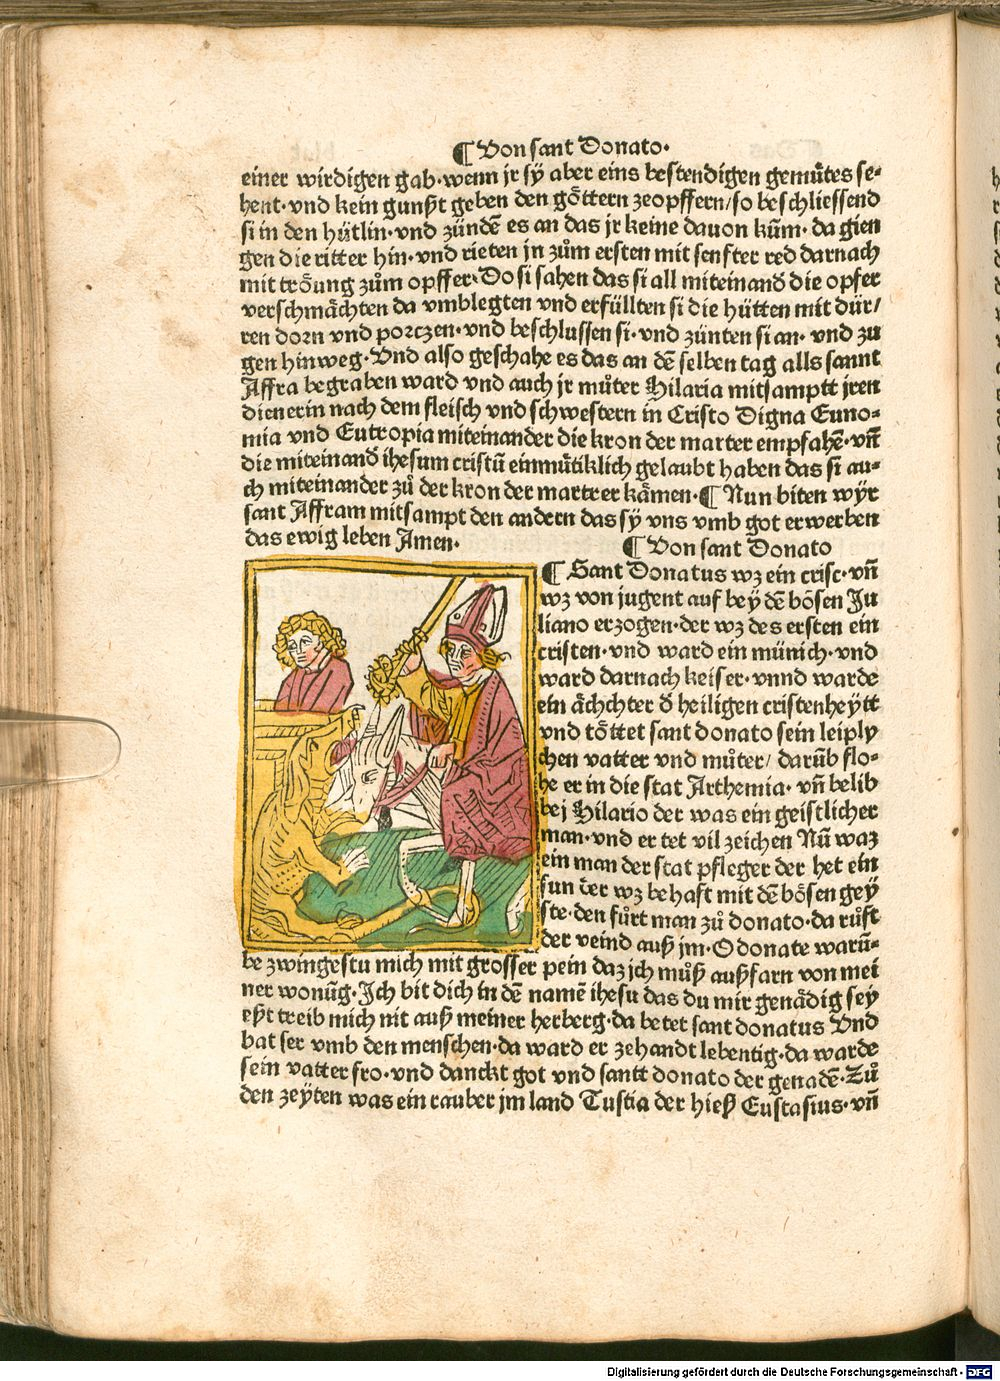 ¶ Von sant Donato·
einer wirdigen gab·wenn jr sÿ aber eins bestendigen gemuͤtes se⸗
hent·vnd kein gunßt geben den goͤttern zeopffern/so beschliessend
si in den huͤtlin·vnd zündē es an das jr keine dauon kūm·da gien
gen die ritter hin·vnd rieten jn zuͦm ersten mit senfter red darnach
mit troͤung zuͦm opffer·Do si sahen das si all miteinand die opfer
verschmaͤchten da vmblegten vnd erfüllten si die hütten mit dür/
ren dorn vnd porczen·vnd beschlussen si·vnd zünten si an·vnd zu
gen hinweg·Vnd also geschahe es das an dē selben tag alls sannt
Affra begraben ward vnd auch jr muͦter Hilaria mitsamptt jren
dienerin nach dem fleisch vnd schwestern in Cristo Digna Euno⸗
mia vnd Eutropia miteinander die kron der marter empfahē·vñ
die miteinand ihesum cristū einmuͤtiklich gelaubt haben das si au⸗
ch miteinander zuͦ der kron der martrer kaͤmen·¶ Nun biten wÿr
sant Affram mitsampt den andern das sÿ vns vmb got erwerben
das ewig leben Amen·
¶ Von sant Donato
¶ Sant Donatus wz ein crisc·vñ
wz von jugent auf beÿ dē boͤsen Ju
liano erzogen·der wz des ersten ein
cristen·vnd ward ein münich·vnd
ward darnach keiser·vnnd warde
ein aͤchchter đ heiligen cristenheÿtt
vnd toͤttet sant donato sein leiply
chen vatter vnd muͦter/darūb flo⸗
he er in die stat Arthemia·vñ belib
bej Hilario der was ein geistlicher
man·vnd er tet vil zeichen Nū waz
ein man der stat pfleger der het ein
sun der wz behaft mit dē boͤsen geÿ
ste·den fuͦrt man zuͦ donato·da ruͦft
der veind auß jm·O donate warū⸗
be zwingestu mich mit grosser pein daz jch muͦß außfarn von mei
ner wonūg·Jch bit dich in dē namē ihesu das du mir genaͤdig sey
eßt treib mich nit auß meiner herberg·da betet sant donatus Vnd
bat ser vmb den menschen·da ward er zehandt lebentig·da warde
sein vatter fro·vnd danckt got vnd santt donato der genadē·Zuͦ
den zeÿten was ein rauber jm land Tustia der hieß Eustasius·vñ
Digitalisierung gefördert durch die Deutsche Forschungsgemeinschaft - DFG